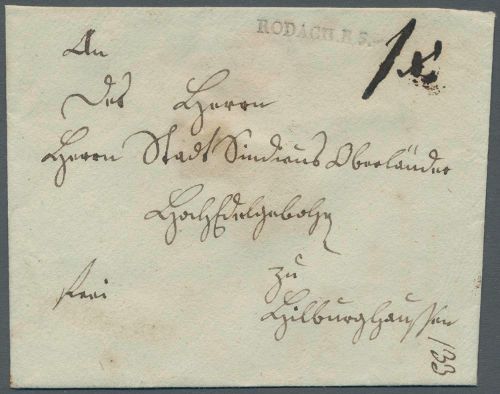 RODACH.R.S.
1 x
An
Des Herrn
Herrn Stadt Sindicus Oberländer
HochEdelgebohr
zu
frei
Hilburghaussen
133